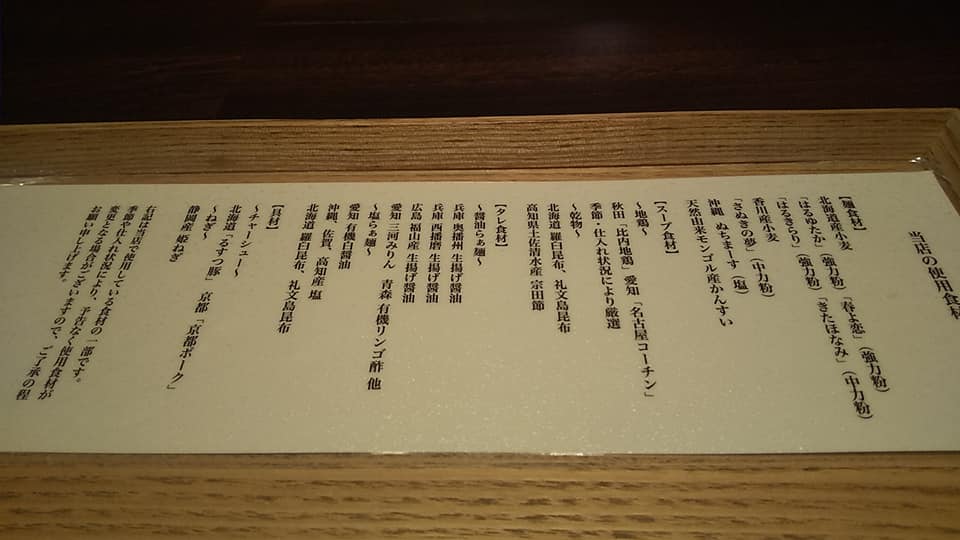 当店の使用食材
【麺食材】
北海道産小麦
「はるゆたか」（強力粉）「春よ恋」（強力粉）
「はるきらり」（強力粉）「きたほなみ」（中力粉）
香川産小麦
「さぬきの夢」（中力粉）
沖縄 ぬちまーす（塩）
天然由来モンゴル産かんすい
【スープ食材】
～地鶏～
秋田「比内地鶏」 愛知「名古屋コーチン」
季節・仕入れ状況により厳選
～乾物～
北海道 羅臼昆布、礼文島昆布
高知県土佐清水産 宗田節
【タレ食材】
～醤油らぁ麺～
兵庫 奥播州 生揚げ醤油
兵庫 西播磨 生揚げ醤油
広島 福山産 生揚げ醤油
愛知 三河みりん 青森 有機リンゴ酢 他
～塩らぁ麺～
愛知 有機白醤油
沖縄、佐賀、高知産 塩
北海道 羅臼昆布、礼文島昆布
【具材】
～チャーシュー～
北海道「るすつ豚」 京都「京都ポーク」
～ねぎ～
静岡産 姫ねぎ
右記は当店で使用している食材の一部です。
季節や仕入れ状況により、予告なく使用食材が
変更となる場合がございますので、ご了承の程
お願い申し上げます。